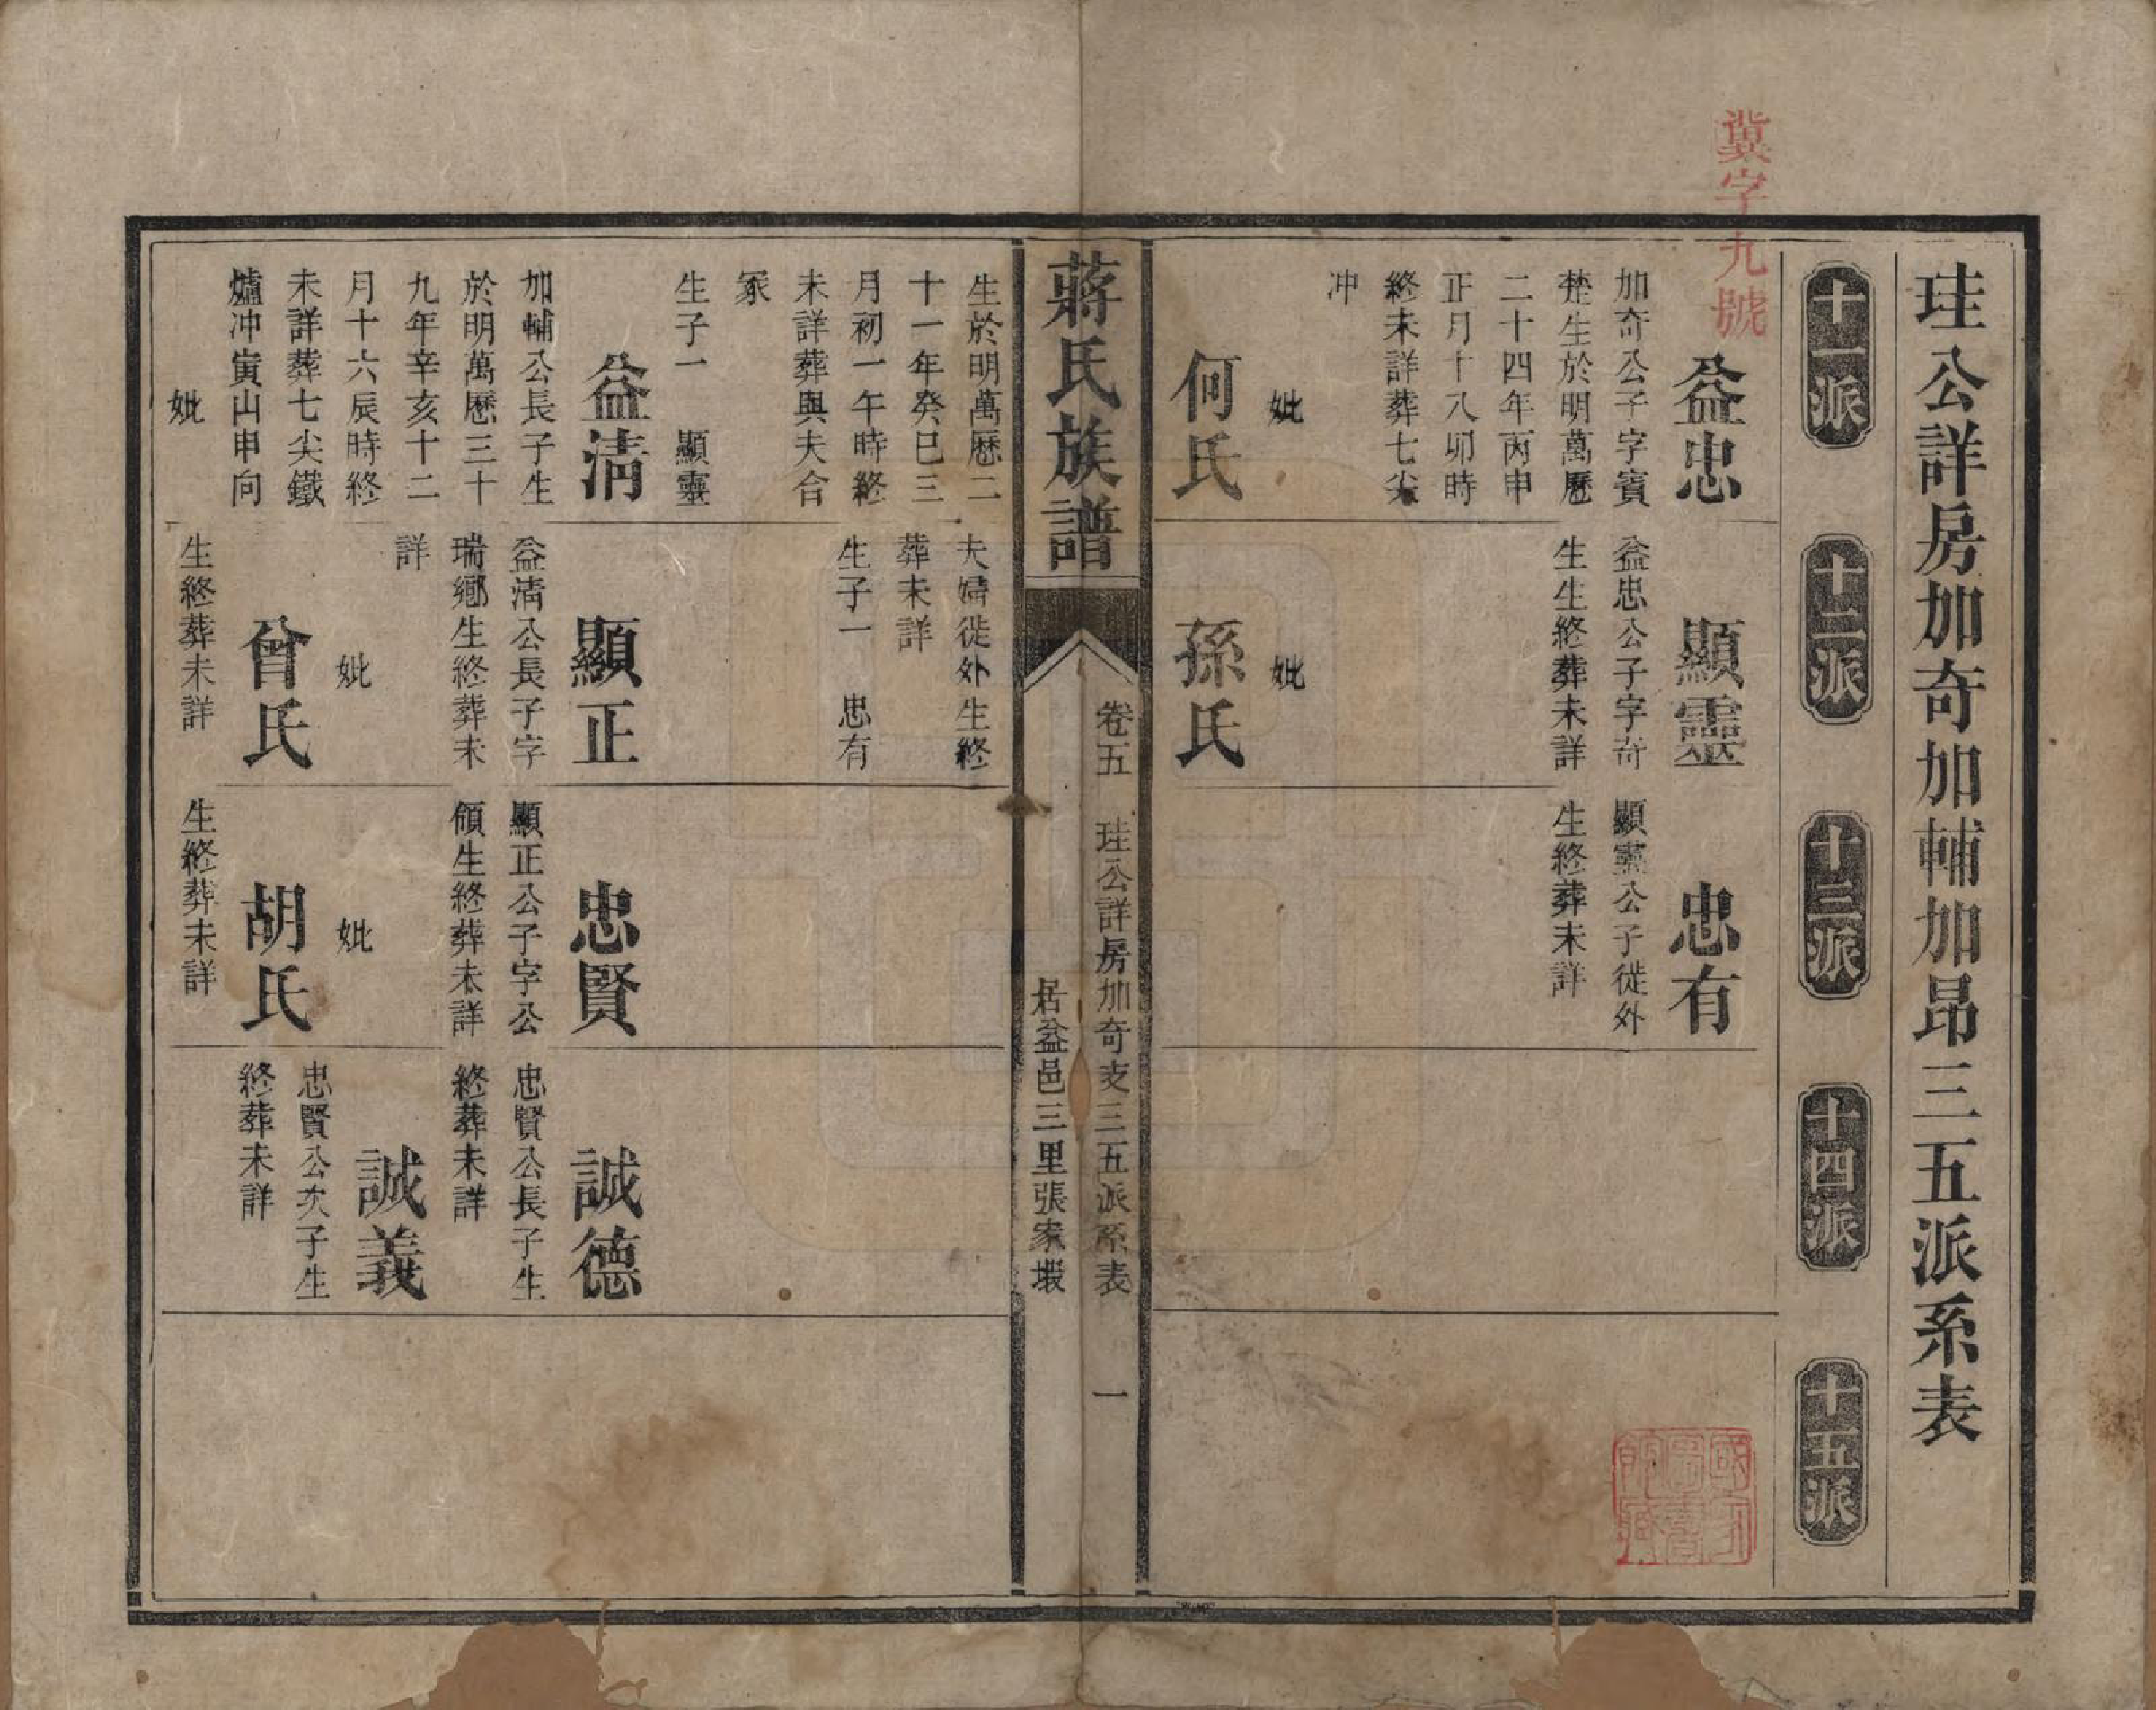 冀字九號
珪公詳房加奇加輔加昂三五派系表
十一派
十二派
十三派
十四派
十五派
益忠
加奇公子字賓
楚生於明萬歷
二十四年丙申
正月十八卯時
終未詳葬七尖
冲
妣
何氏
顯靈
益忠公子字奇
生生終葬未詳
妣
孫氏
忠有
顯靈公子徙外
生終葬未詳
蔣氏族譜
卷五
珪公詳房加奇支三五派系表
一
居益邑三里張家塅
生於明萬歷二
十一年癸巳三
月初一午時終
未詳葬與夫合
冢
生子一 顯靈
益清
加輔公長子生
於明萬歷三十
九年辛亥十二
月十六辰時終
未詳葬七尖鐵
爐冲寅山申向
妣
夫婦徙外生終
葬未詳
生子一 忠有
顯正
益清公長子字
瑞鄉生終葬未
詳
妣
曾氏
生終葬未詳
忠賢
顯正公子字公
傾生終葬未詳
妣
胡氏
生終葬未詳
誠德
忠賢公長子生
終葬未詳
誠義
忠賢公次子生
終葬未詳